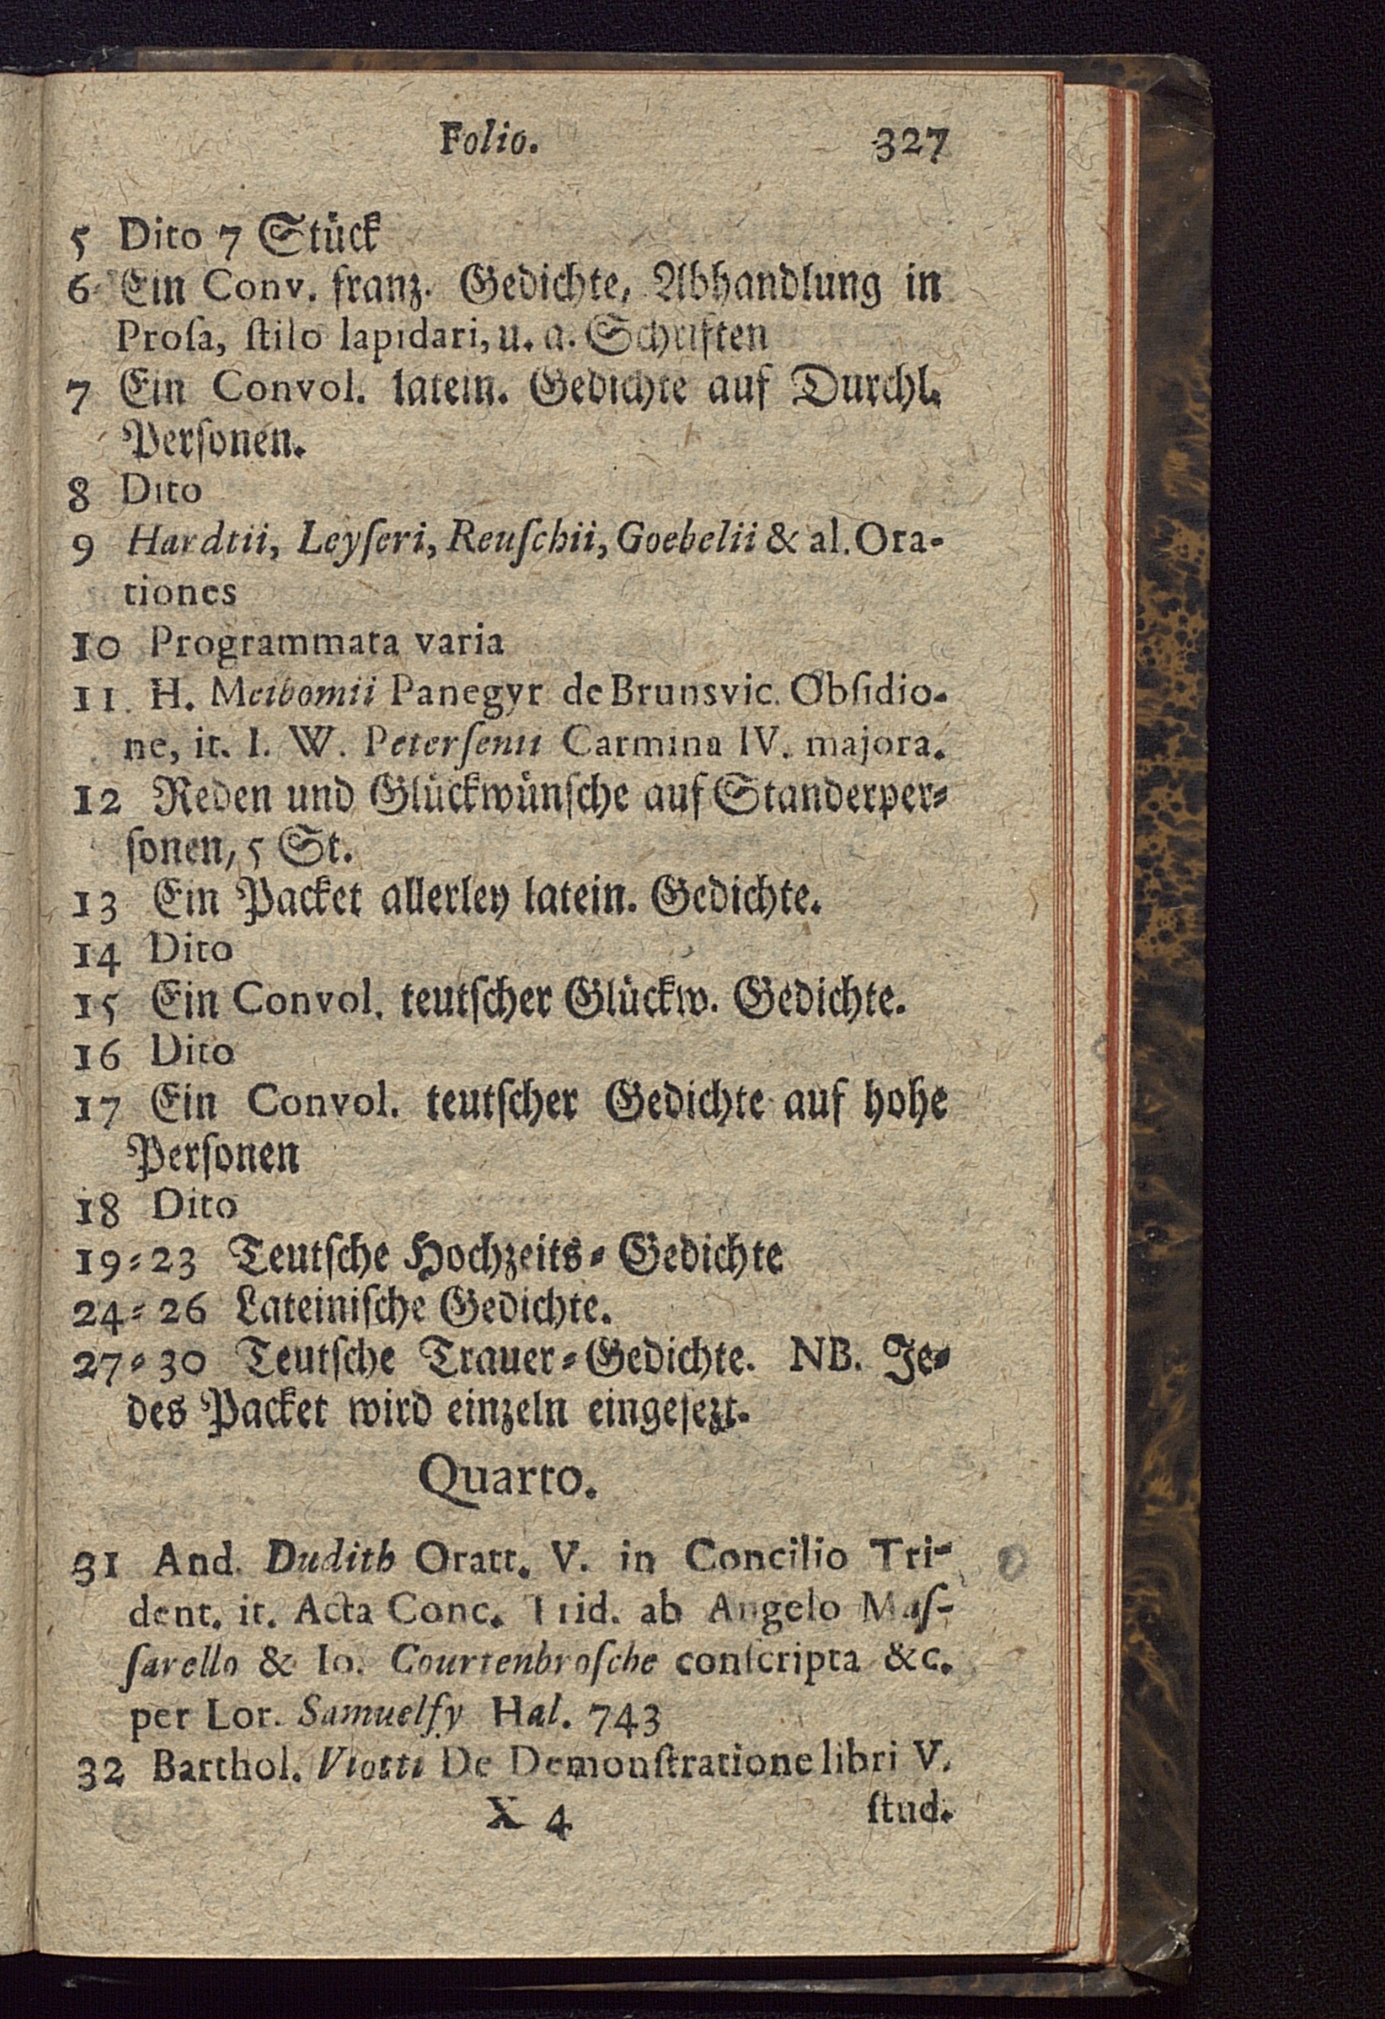 Folio. 327
5 Dito 7 Stück
6 Ein Conv. franz. Gedichte, Abhandlung in
Proſa, ſtilo lapidari, u. a. Schriften
7 Ein Convol. latein. Gedichte auf Durchl.
Perſonen.
8 Dito
9 Hardtii, Leyſeri, Reuſchii, Goebelii & al. Ora-
tiones
10 Programmata varia
11. H. Meibomii Panegyr de Brunsvic. Obſidio-
ne, it. I. W. Peterſenii Carmina IV. majora.
12 Reden und Glückwünſche auf Standerper-
ſonen, 5 St.
13 Ein Packet allerley latein. Gedichte.
14 Dito
15 Ein Convol. teutſcher Glückw. Gedichte.
16 Dito
17 Ein Convol. teutſcher Gedichte auf hohe
Perſonen
18 Dito
19-23 Teutſche Hochzeits-Gedichte
24-26 Lateiniſche Gedichte.
27-30 Teutſche Trauer-Gedichte. NB. Je-
des Packet wird einzeln eingeſezt.
Quarto.
31 And. Dudith Oratt. V. in Concilio Tri-
dent. it. Acta Conc. Trid. ab Angelo Maſ-
ſarello & Io. Courtenbroſche conſcripta &c.
per Lor. Samuelfy Hal. 743
32 Barthol. Viotti De Demonſtratione libri V.
X 4 ſtud.